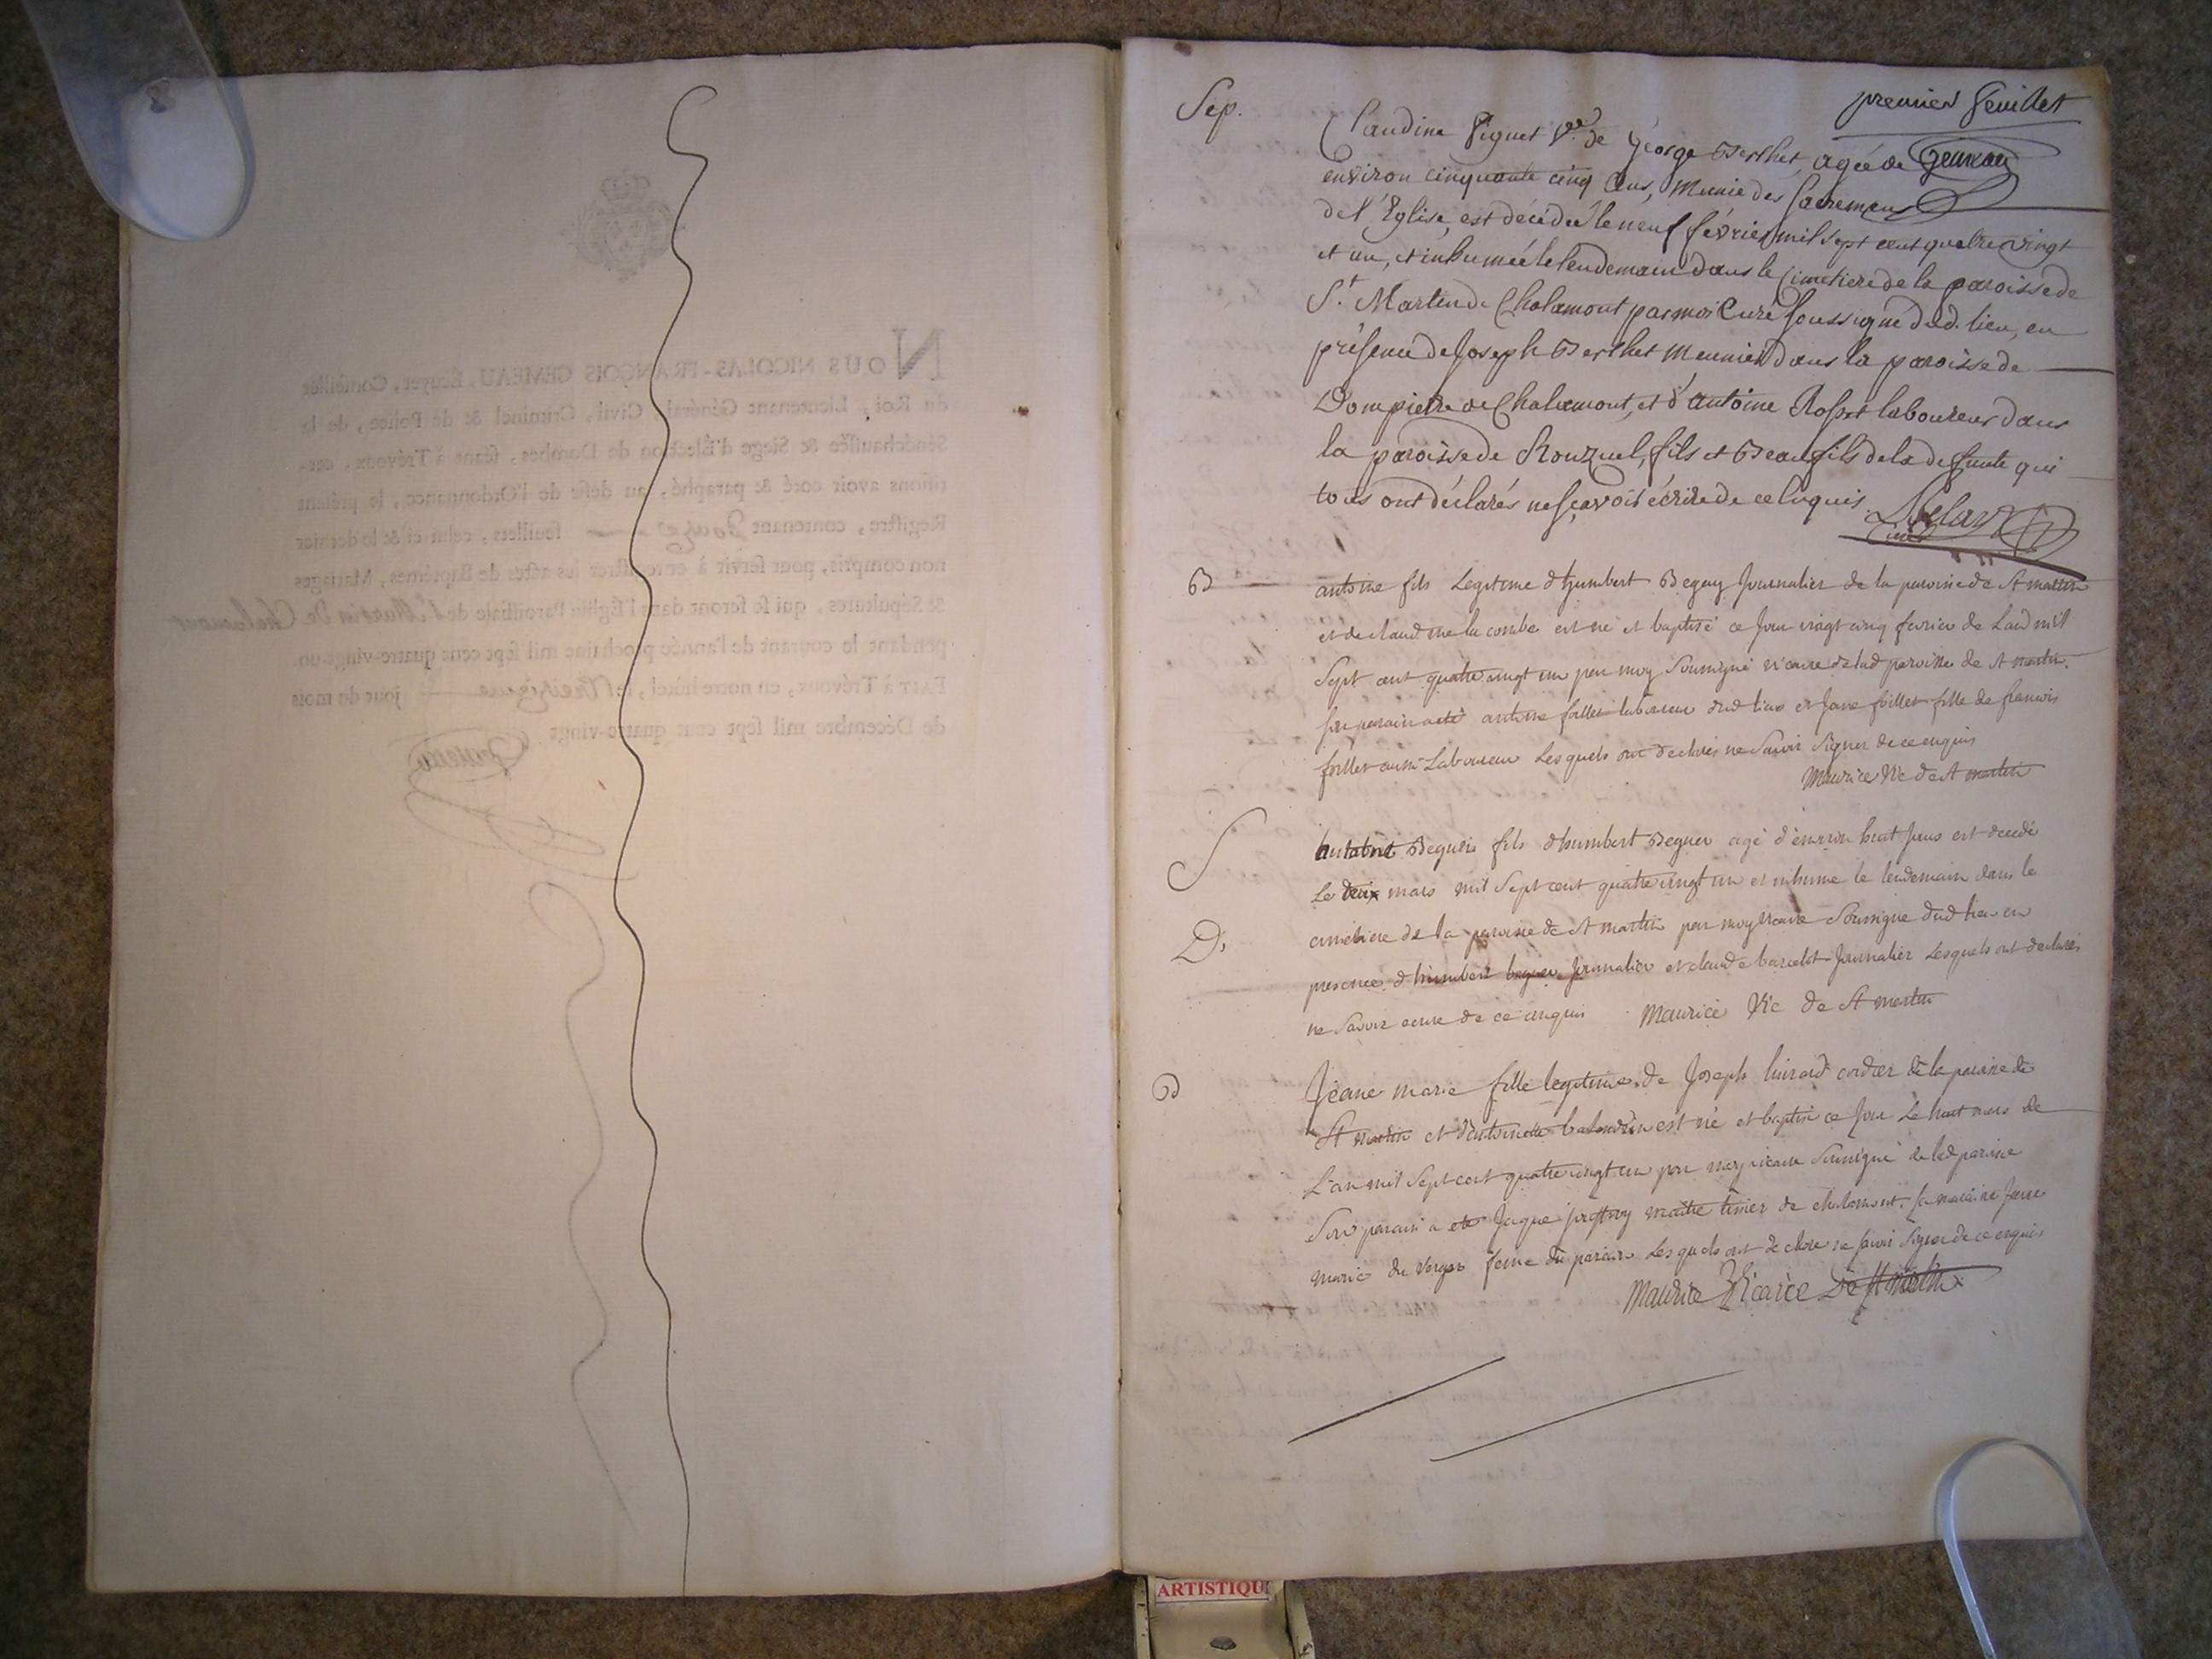 premier feuillet
Gemeau
Sep.
Claudine Piguet Vve de George Berthet, agée de
environ cinquante cinq ans, Munie des Sacremens
de l'Eglise, est décédée le neuf février mil sept cent quatre vingt
et un, et inhumée le lendemain dans le Cimetiere de la paroisse de
St Martin de Chalamont par moi Curé soussigné dud. lieu, en
présence de Joseph Berthet Meunier dans la paroisse de
Dompierre de Chalamont, et d'antoine laboureur dans
la paroisse de fils et Beaufils de la defunte qui
tous ont déclarés ne sçavoir écrire de ce enquis.
B
antoine fils Legitime d'humbert Beguy Journalier de la paroisse de St martin
et de claudine la combe est né et baptisé ce Jour vingt cinq fevrier de Lan mil
Sept cent quatre vingt un par moy Soussigné vicaire de lad paroisse de St martin.
son parain a eté antoine follet laboureur dud lieu et Jane follet fille de francois
follet aussi Laboureur Lesquels ont declarés ne Savoir Signer de ce enquis
Maurice Vic de St martin
S
Beguin fils d'humbert Beguer agé d'environ huit Jours est decedé
Le deux mars mil Sept cent quatre vingt un et inhumé le lendemain dans le
D.
cimetiere de la paroisse de St martin par moy vicaire Soussigné dud lieu en
presence d'humbert beguer Journalier et claude barcelot Journalier Lesquels ont declarés
ne Savoir ecrire de ce enquis Maurice Vic de St martin
B
Jeane marie fille legitime de Joseph cordier de la paroisse de
St martin et d'antoinette est né et baptisé ce Jour Le huit mars de
L'an mil Sept cent quatre vingt un par moy vicaire Soussigné de lad paroisse
Son parain a eté Jaque maitre de chalamont. sa maraine Jane
marie du verger feme du parain Lesquels ont declaré ne savoir Signer de ce enquis
Maurice Vicaire De St martin
NOUS NICOLAS-FRANÇOIS GEMEAU, Ecuyer, Conseiller
du Roi, Lieutenant Général, Civil, Criminel & de Police, de la
Sénéchaussée & Siege d'Élection de Dombes, séant à Trévoux, cer-
tifions avoir coté & paraphé, au desir de l'Ordonnance, le présent
Registre, contenant Douze feuillets, celui-ci & le dernier
non compris, pour servir à enregistrer les actes de Baptêmes, Mariages
& Sépultures, qui se feront dans l'Église Paroissiale de St Martin De Chalamont
pendant le courant de l'année prochaine mil sept cens quatre-vingt-un.
FAIT à Trévoux, en notre hôtel, le treizieme jour du mois
de Décembre mil sept cent quatre-vingt
Gemeau
ARTISTIQU